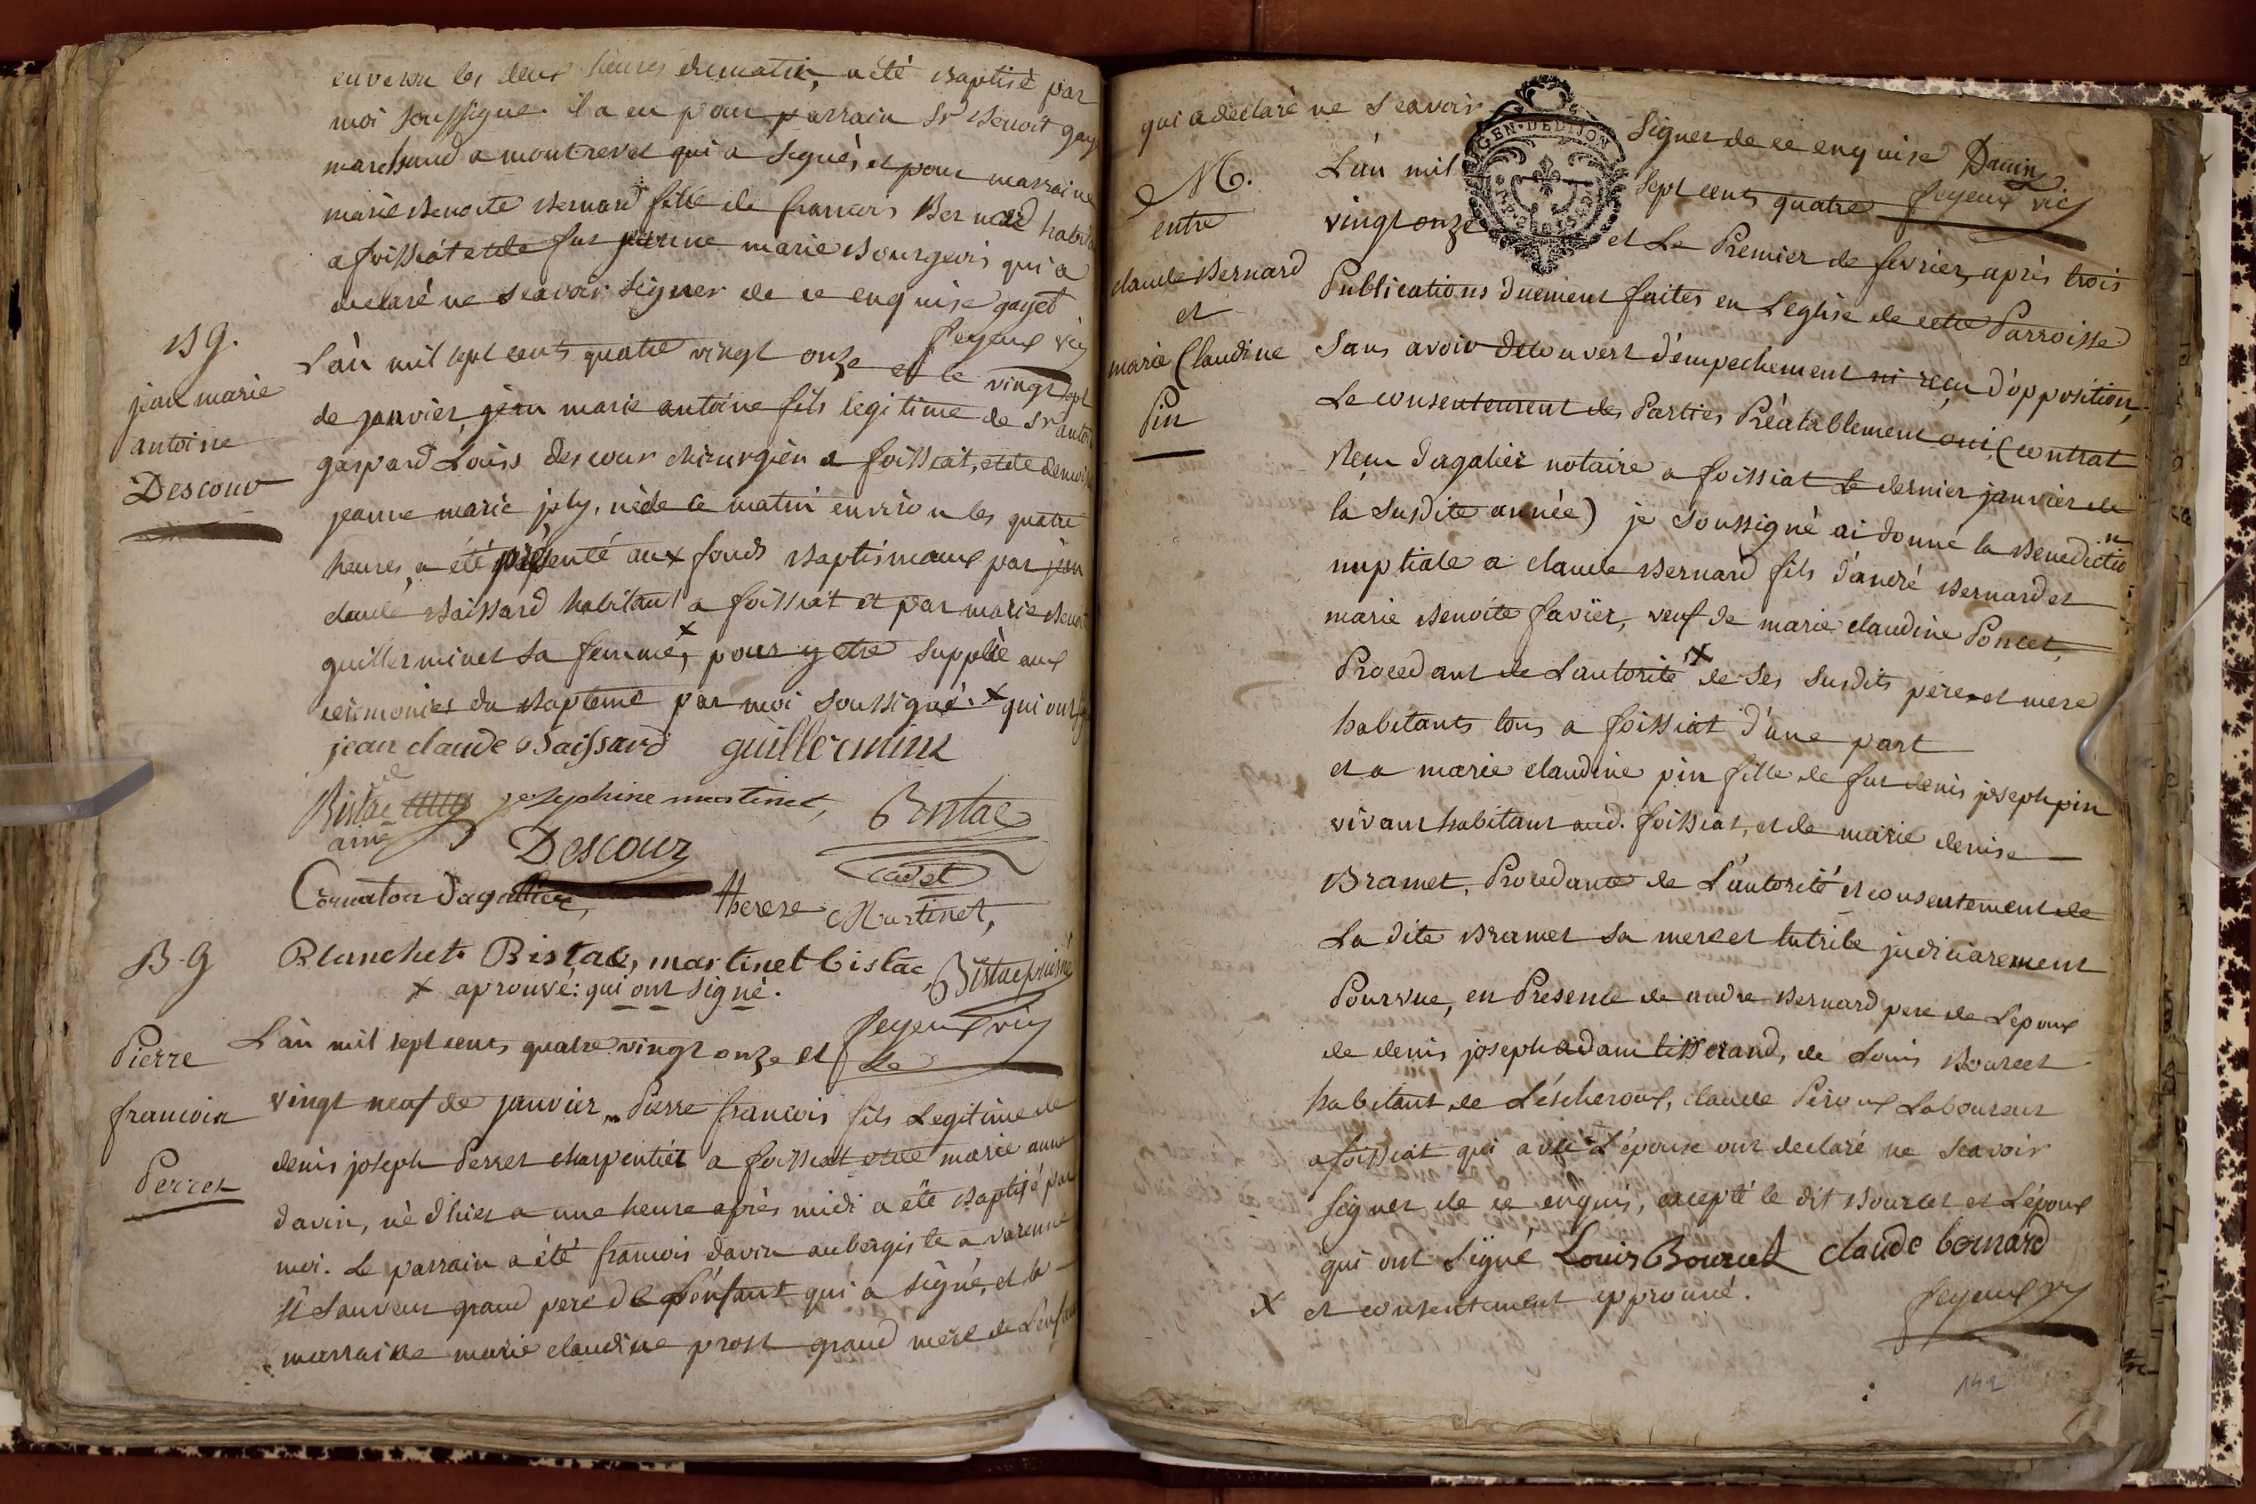 environ les deux heures du matin, a été Baptisé par
moi soussigné. il a eu pour parrain Sr Benoit gayet
marchand a montrevel qui a signé, et pour marraine
marie Benoite Bernard fille de francois Bernard habitant
a foissiat et de fue jeanne marie Bourgeois qui a
declaré ne scavoir signer de ce enquise gayet
feyeux vic
B g.
jean marie
antoine
Descour
L'an mil sept cents quatre vingt onze et le vingt sept
de janvier, jean marie antoine fils legitime de Sr antoine
gaspard Louis descour chirurgien a foissiat, et de demoiselle
jeanne marie joly, né de ce matin environ les quatre
heures, a été présenté aux fonds Baptismaux par jean
claude Baissard habitant a foissiat et par marie Benoite
guillerminet sa femme, x pour y etre supplée aux
ceremonies du Baptême par moi soussigné. x qui ont signé
jean claude Baissard guillerminet
Bistac
ainé
josephine martinet,
Bistac
cadet
Descour
Cornaton dagallier,
therese Martinet,
Blanchet Bistac, martinet bistac
Bistac puisné
x aprouvé: qui ont signé.
feyeux vic
B. g
Pierre
francois
Perret
L'an mil sept cents quatre vingt onze et le
vingt neuf de janvier, Pierre francois fils Legitime de
denis joseph Perret charpentier a foissiat et de marie anne
davin, né d'hier a une heure après midi a été Baptisé par
moi. Le parrain a été francois davin aubergiste a varenne
St Sauveur grand pere de L'enfant qui a signé, et la
marraine marie claudine prost grand mere de L'enfant
qui a declaré ne scavoir signer de ce enquise Davin
feyeux vic
GEN. DE DIJON
M.
entre
claude Bernard
et
marie Claudine
Pin
L'an mil sept cents quatre
vingt onze et Le Premier de fevrier, après trois
Publications duement faites en L'eglise de cette Parroisse
Sans avoir decouvert d'empechement ni reçu d'opposition,
Le consentement des Parties Préalablement oui (contrat
Reçu dagalier notaire a foissiat le dernier janvier de
la susdite année) je soussigné ai donné la Benediction
nuptiale a claude Bernard fils d'andré Bernard et
marie Benoite favier, veuf de marie claudine Poncet,
Procedant de L'autorité x de ses susdits pere et mere
habitants tous a foissiat d'une part
et a marie claudine pin fille de fut denis joseph pin
vivant habitant aud. foissiat, et de marie denise
Bramet, Procedante de L'autorité et consentement de
La dite Bramet sa mere et tutrice judiciairement
Pourvue, en Presence de andre Bernard pere de L'epoux
de denis joseph adam tisserand, de Louis Bourcet
habitant de L'éscheroux, claude Piroux Laboureur
a foissiat qui avec L'épouse ont declaré ne scavoir
signer de ce enquis, excepté le dit Bourcet et L'époux
qui ont signé Louis Bourcet claude bernard
x et consentement approuvé.
feyeux vic
142